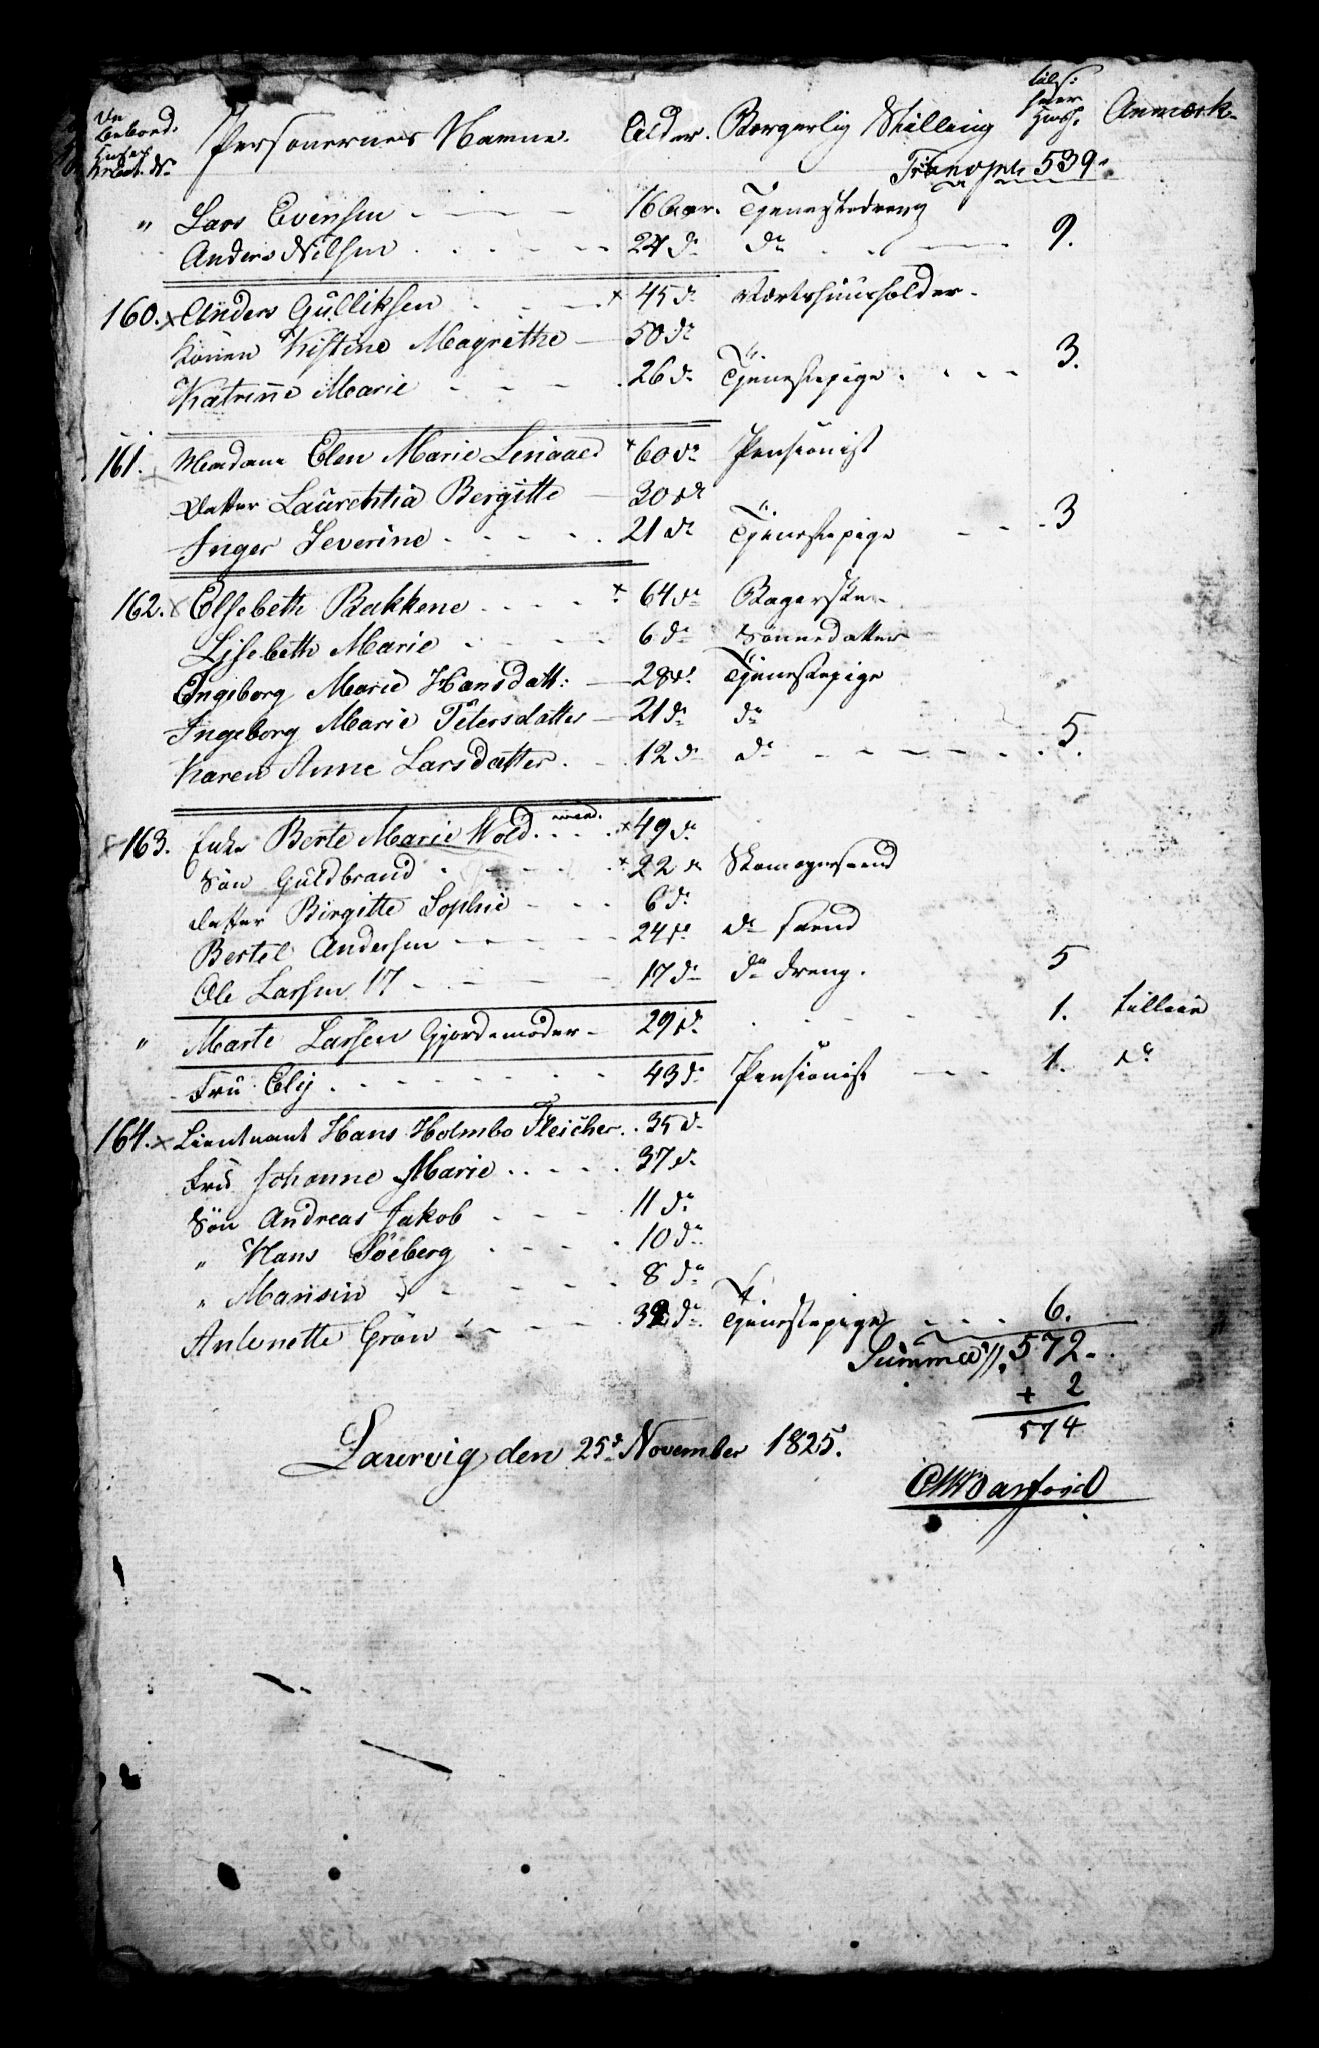 De Beboed. Huses Matr. No Personernes Navne. Alder. Borgerlig Stilling Anmærk.
Transpt. 539.
" Lars Evensen - - - 16 Aar. Tjenestedreng
Anders Nilsen - - - 24 do do - - - 9.
160. x Anders Gulliksen - - - x 45 do Vertshuusholder.
Konen Kistine Magrethe - 50 do "
Katrine Marie - - - 26 do Tjenestepige - - - 3.
161. Madame Elen Marie Linaae x 60 do Pensionist
Datter Laurentia Bergitte - 30 do "
Inger Severine - - - 21 do Tjenestepige - - 3
162. x Elsebeth Bakkene - - - x 64 do Bagerske
Lisebeth Marie - - - 6 do Sønnedatter
Engeborg Marie Hansdatt: - 28 do Tjenestepige
Ingeborg Marie Petersdatter - 21 do do
Karen Anne Larsdatter - - 12 do do - - - 5.
163. Enke Berte Marie Wold - - - x 49 do
Søn Guldbrand - - - x 22 do Skomagersvend
Datter Birgitte Sophie - - - 6 do
Bertel Andersen - - - 24 do do svend
Ole Larsen 17 - - - 17 do do dreng. 5
" Marte Larsen Gjordemoder - 29 do - - - 1. tilleie
Fru Ely - - - 43 do Pensionist - - - 1. do
164. x Lieutnant Hans Holmbo Fleicher. . 35 do
Fru Johanne Marie - - - 37 do
Søn Andreas Jakob - - - 11 do
" Hans Soeberg - - - 10 do
" Mansin - - - 8 do
Antonette Grøn - - - do Tjenestepige - - - 6.
Summa 572.
+ 2
574
Laurvig den 25d November 1825.